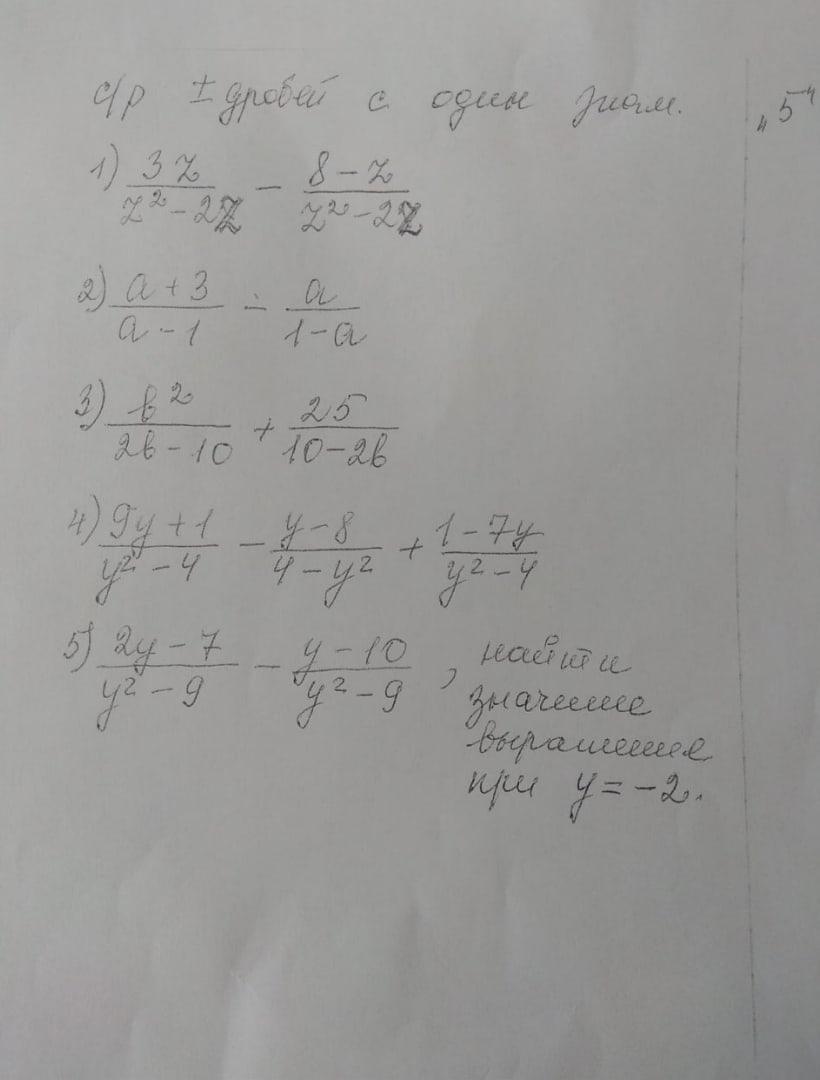 с/р ± дробей с один знам. „5"
1) \frac{3z}{z^2-2z} - \frac{8-z}{z^2-2z}
2) \frac{a+3}{a-1} - \frac{a}{1-a}
3) \frac{b^2}{2b-10} + \frac{25}{10-2b}
4) \frac{9y+1}{y^2-4} - \frac{y-8}{4-y^2} + \frac{1-7y}{y^2-4}
5) \frac{2y-7}{y^2-9} - \frac{y-10}{y^2-9}, найти
значение
выражения
при y=-2.